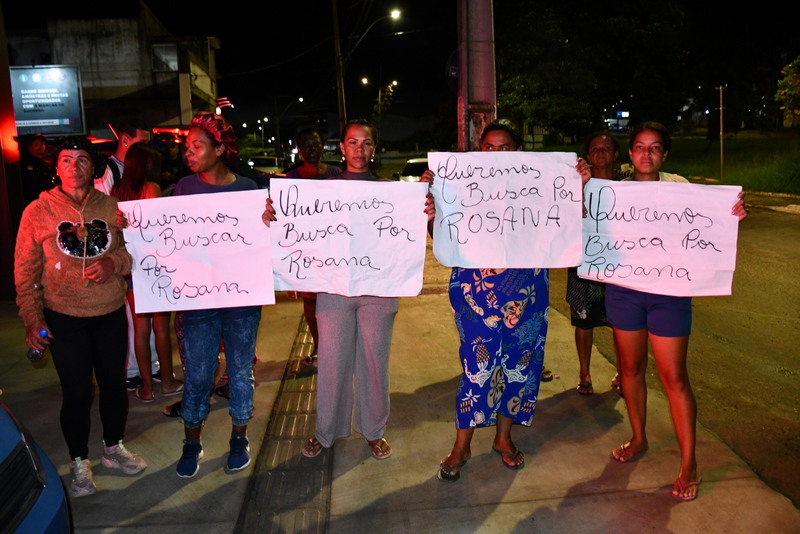 Queremos
Buscar
Por
Rosana
Queremos
Busca Por
Rosana
Queremos
Busca Por
ROSANA
Queremos
Busca Por
Rosana